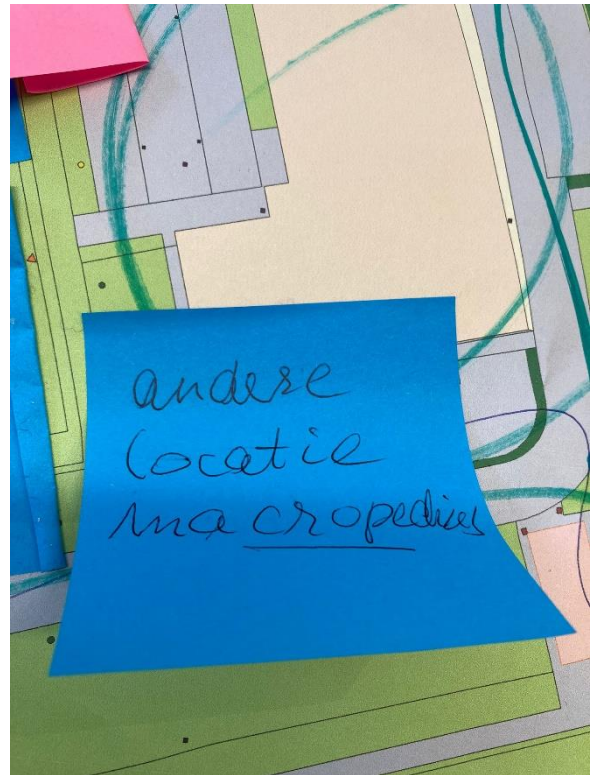 andere
locatie
macropedius